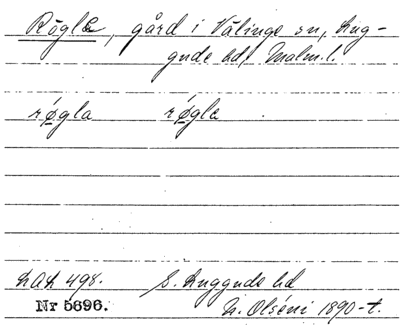 Rögle, gård i Välinge sn, Lug-
gude hd, Malm. l.
røgla røgla
LAL 498. S. Luggude hd
Nr 5696. N. Olséni 1890-t.